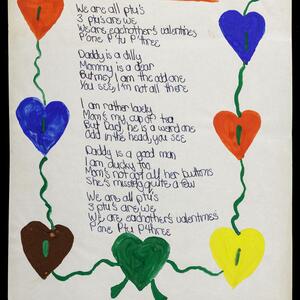 We are all ptu's
3 ptu's are we
We are eachother's valentines
P one P tu P three
Daddy is a dilly
Mommy is a dear
But me, I am the odd one
You see, I'm not all there
I am rather lovely
Mom's my cup of tea
But Dad, he is a weird one
Odd in the head, you see
Daddy is a good man
I am ducky too
Mom's not got all her buttons
She's missing quite a few
We are all ptu's
3 ptu's are we
We are eachother's valentines
P one P tu P three